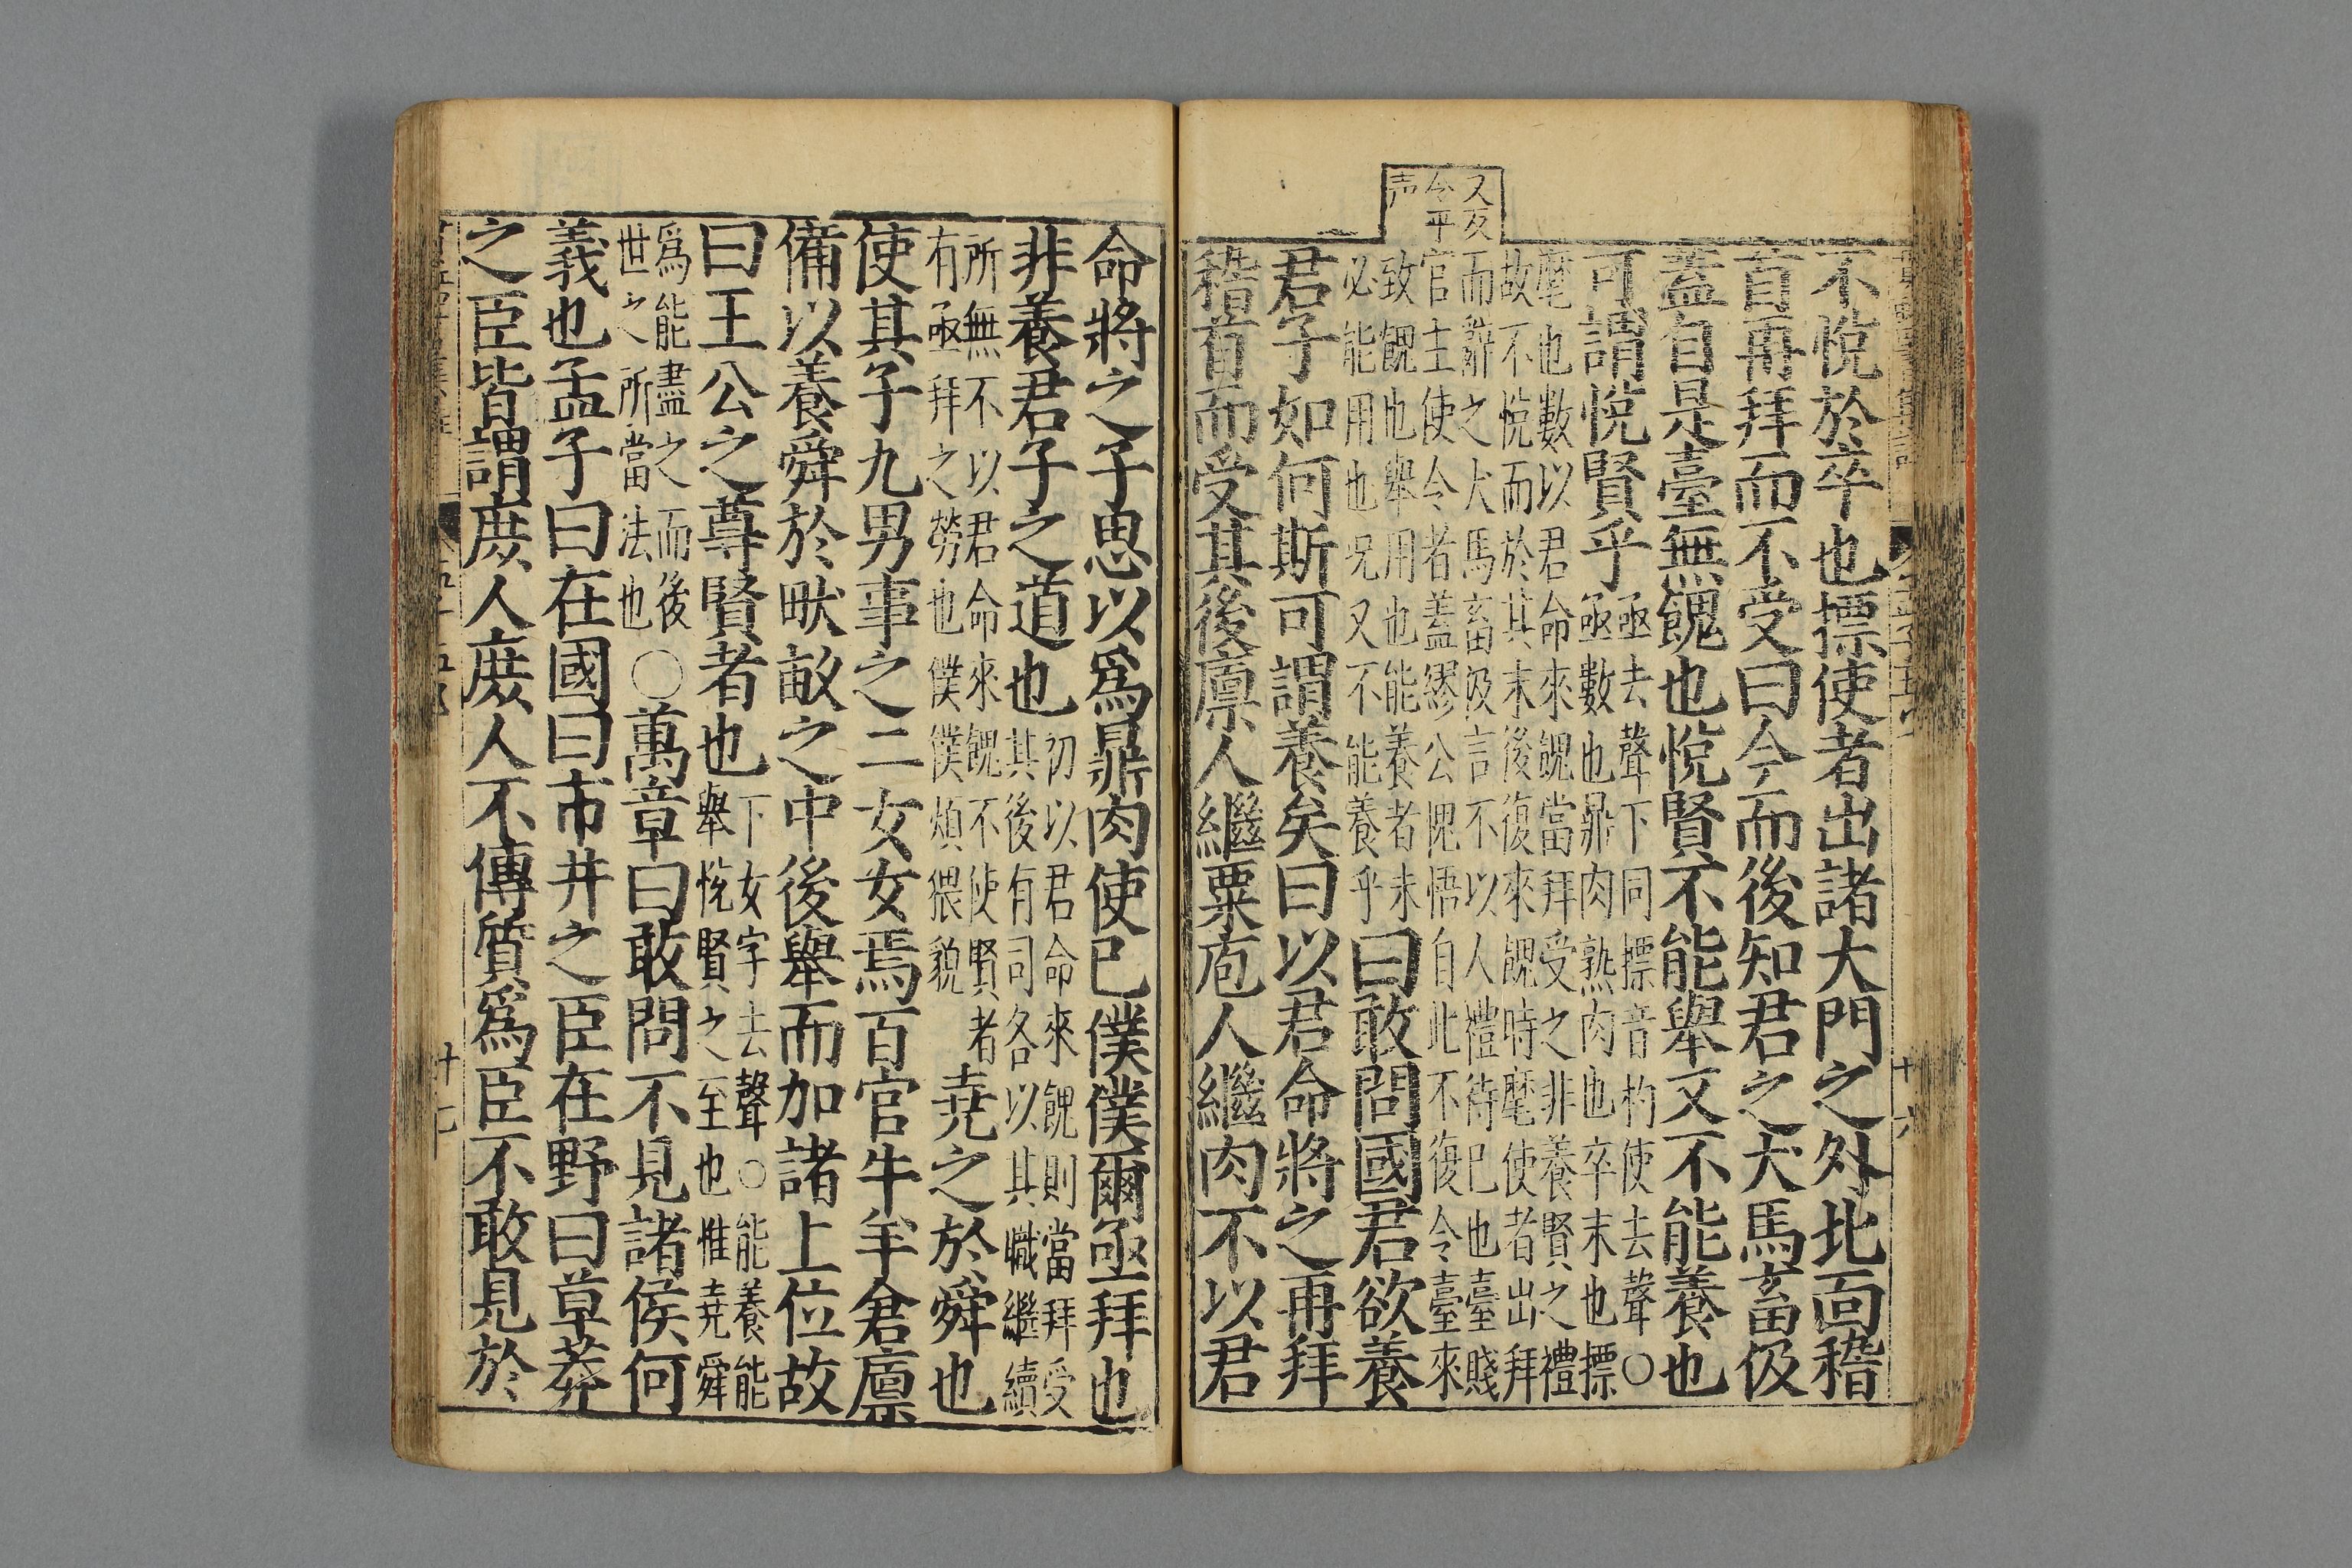 不悅於卒也摽使者出諸大門之外北面稽
首再拜而不受曰今而後知君之犬馬畜伋
蓋自是臺無餽也悅賢不能舉又不能養也
可謂悅賢乎
亟去聲下同摽音杓使去聲○
亟數也鼎肉熟肉也卒末也摽
麾也數以君命來餽當拜受之非養賢之禮
故不悅而於其末後復來餽時麾使者出拜
而辭之犬馬畜伋言不以人禮待己也臺賤
官主使令者蓋繆公愧悟自此不復令臺來
致餽也舉用也能養者未
必能用也況又不能養乎
曰敢問國君欲養
君子如何斯可謂養矣曰以君命將之再拜
稽首而受其後廩人繼粟庖人繼肉不以君
又反
令平
声
十六
命將之子思以爲鼎肉使己僕僕爾亟拜也
非養君子之道也
初以君命來餽則當拜受
其後有司各以其職繼續
所無不以君命來餽不使賢者
有亟拜之勞也僕僕煩猥貌
堯之於舜也
使其子九男事之二女女焉百官牛羊倉廩
備以養舜於畎畝之中後舉而加諸上位故
曰王公之尊賢者也
下女字去聲○能養能
舉悅賢之至也惟堯舜
爲能盡之而後
世之所當法也
○萬章曰敢問不見諸侯何
義也孟子曰在國曰市井之臣在野曰草莽
之臣皆謂庶人庶人不傳質爲臣不敢見於